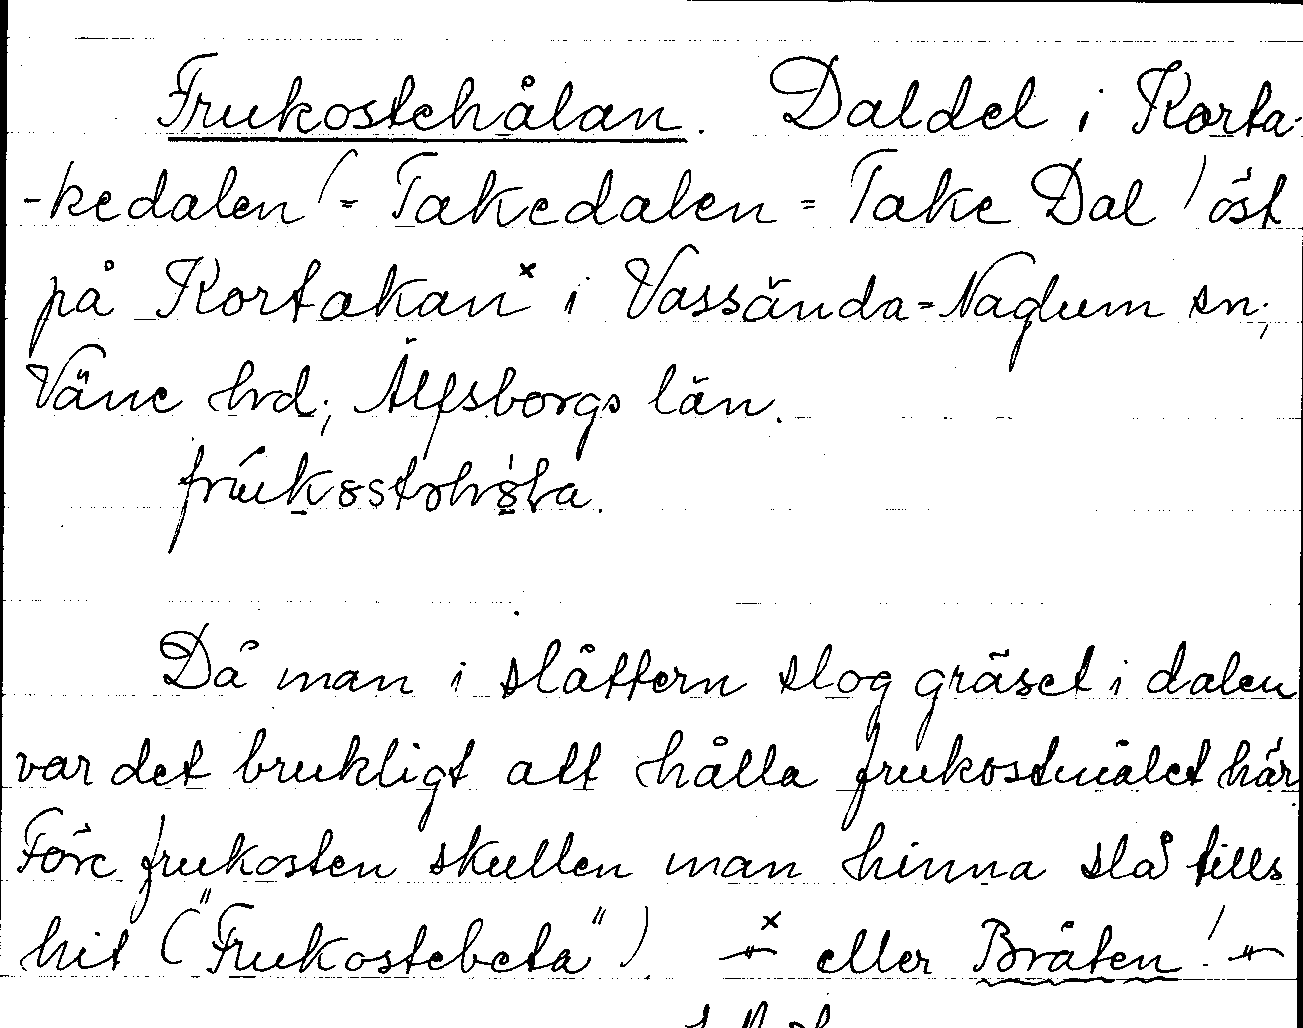 Frukostehålan. Daldel i Korta-
-kedalen (= Takedalen = Take Dal) öst
på Kortakan x i Vassända=Naglum sn;
Väne hrd; Älfsborgs län.
Då man i slåttern slog gräset i dalen
var det brukligt att hålla frukostmålet här
Före frukosten skullen man hinna slå tills
hit ("Frukostebeta"). x eller Bråten!